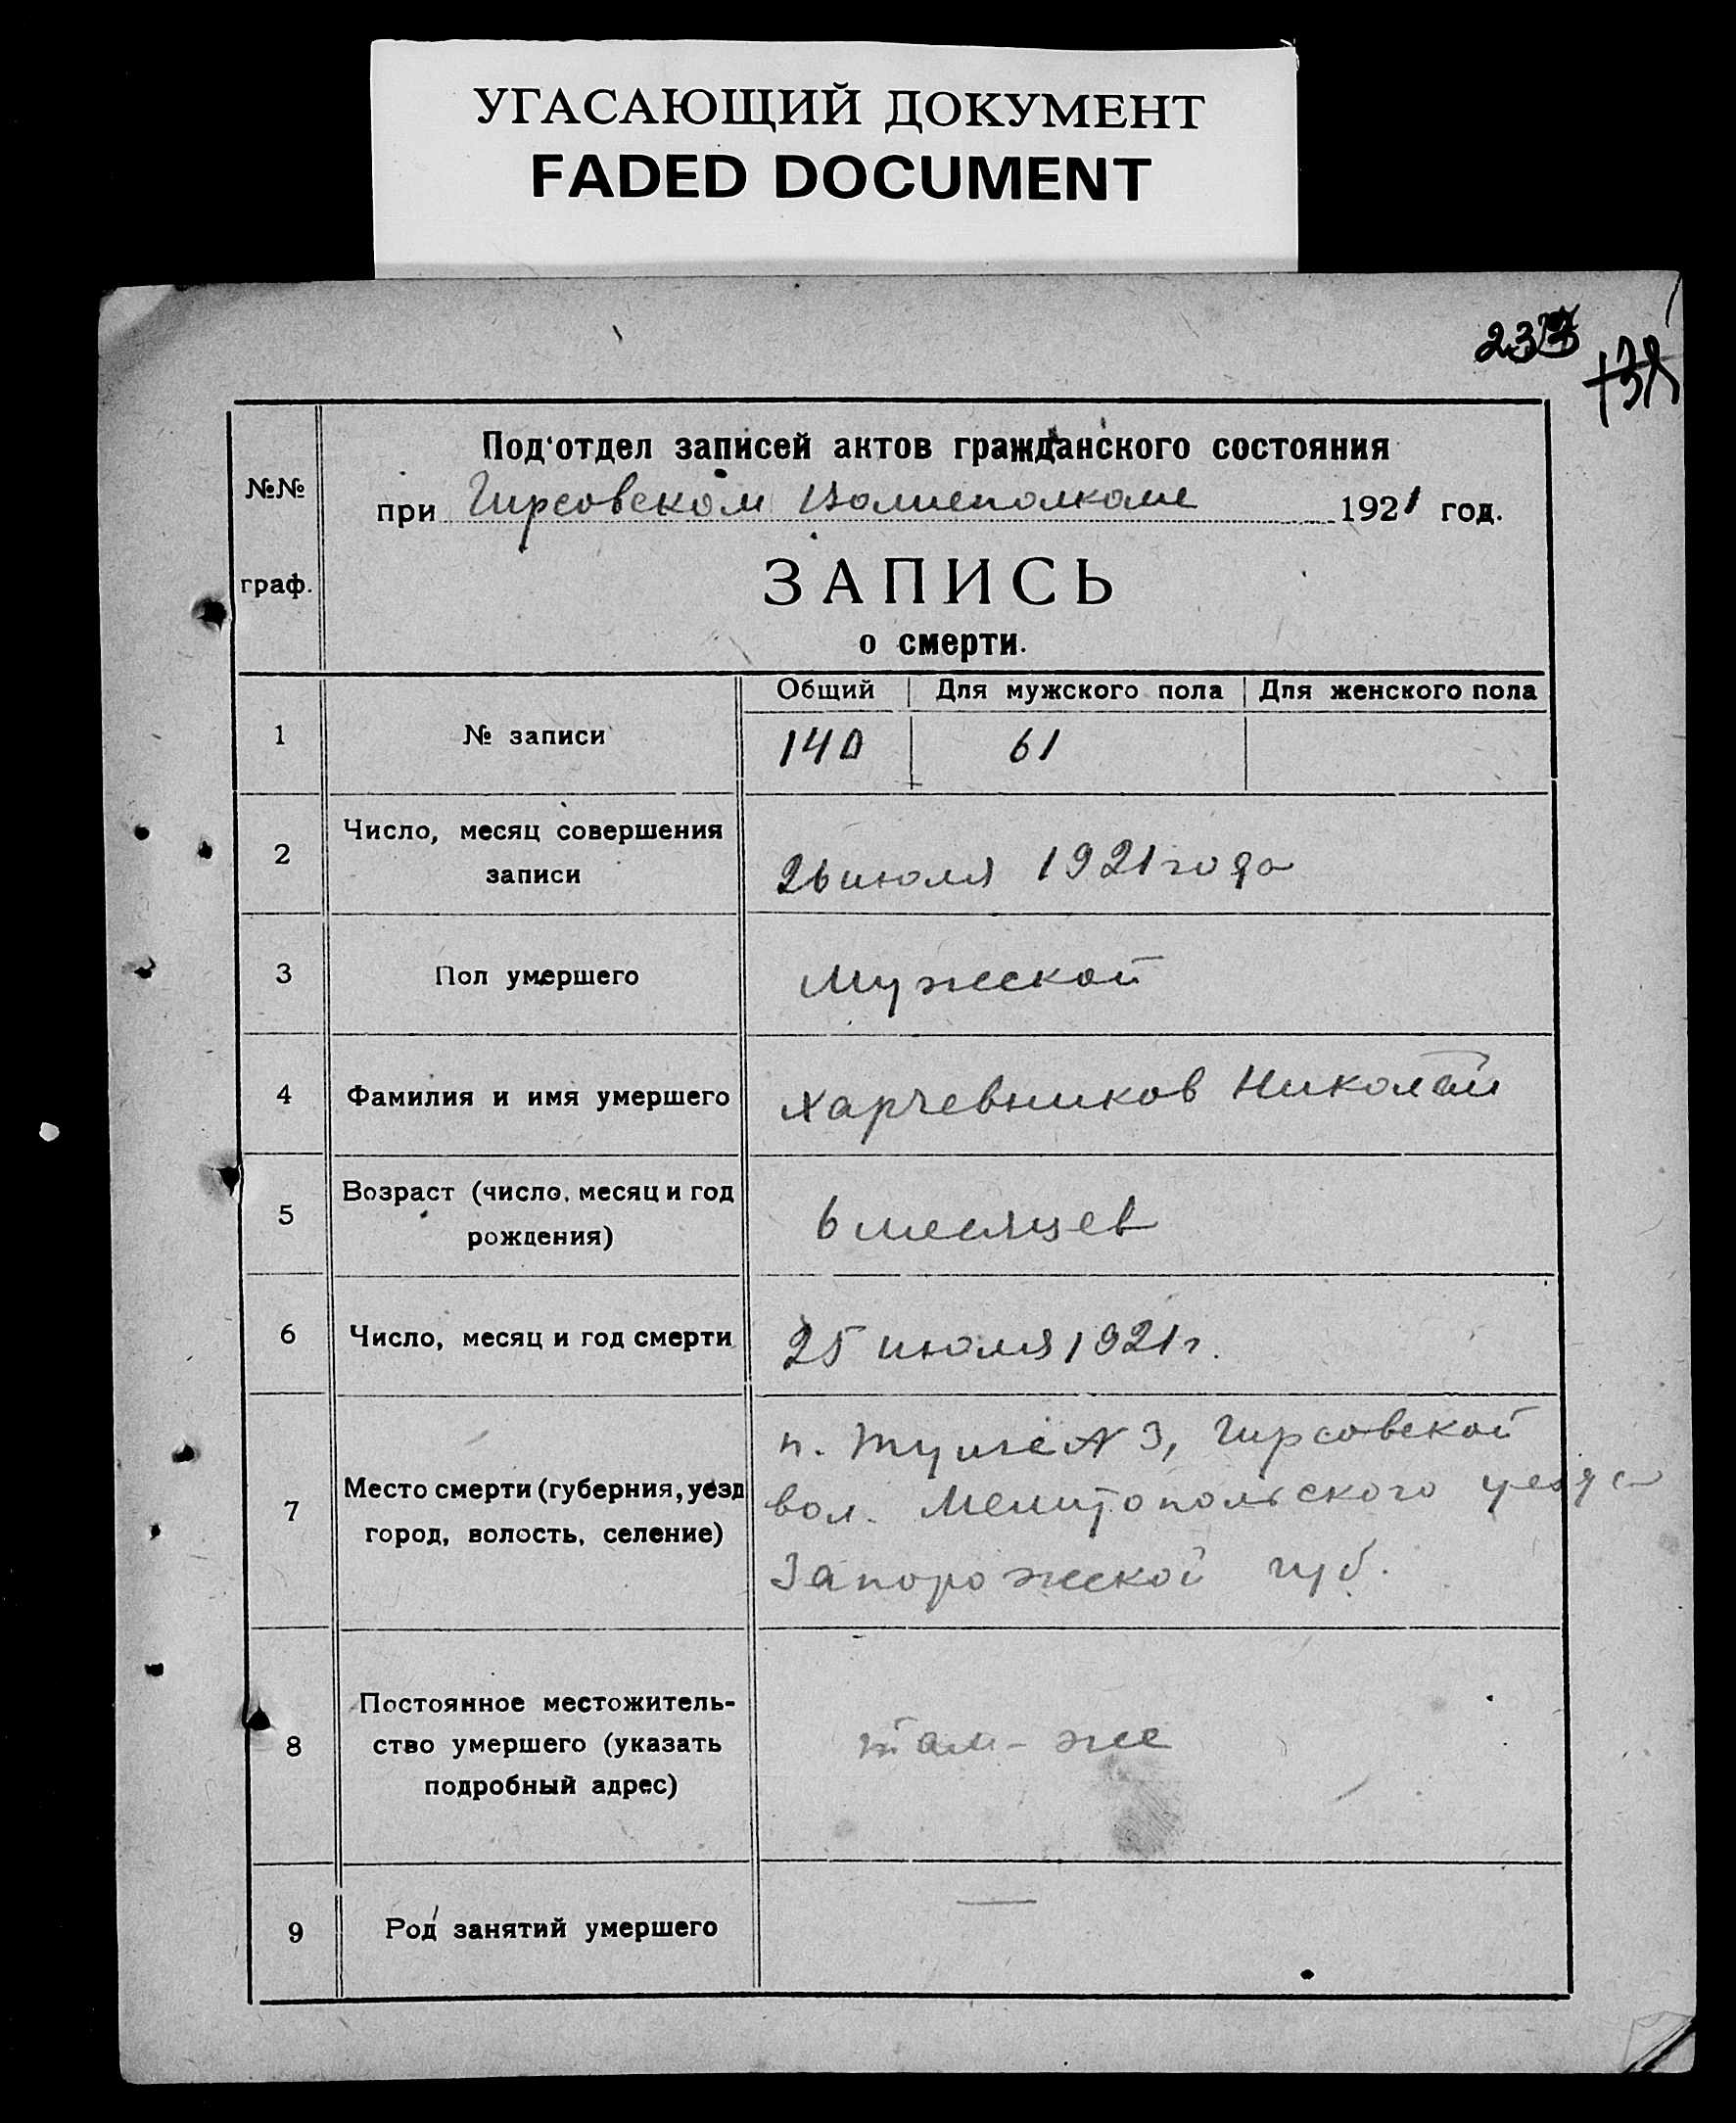 УГАСАЮЩИЙ ДОКУМЕНТ
FADED DOCUMENT
233
№№ граф.
Под'отдел записей актов гражданского состояния
при Гирсовском Волисполкоме 1921 год.
ЗАПИСЬ
о смерти.
Общий Для мужского пола Для женского пола
1 № записи 140 61
2 Число, месяц совершения
записи 26 июля 1921 года
3 Пол умершего Мужской
4 Фамилия и имя умершего Харчевников Николай
5 Возраст (число, месяц и год
рождения) 6 месяцев
6 Число, месяц и год смерти 25 июля 1921 г.
7 Место смерти (губерния, уезд
город, волость, селение)
п. № 3, Гирсовской
вол. Мелитопольского уезда
Запорожской губ.
8 Постоянное местожитель-
ство умершего (указать
подробный адрес)
там-же
9 Род занятий умершего —